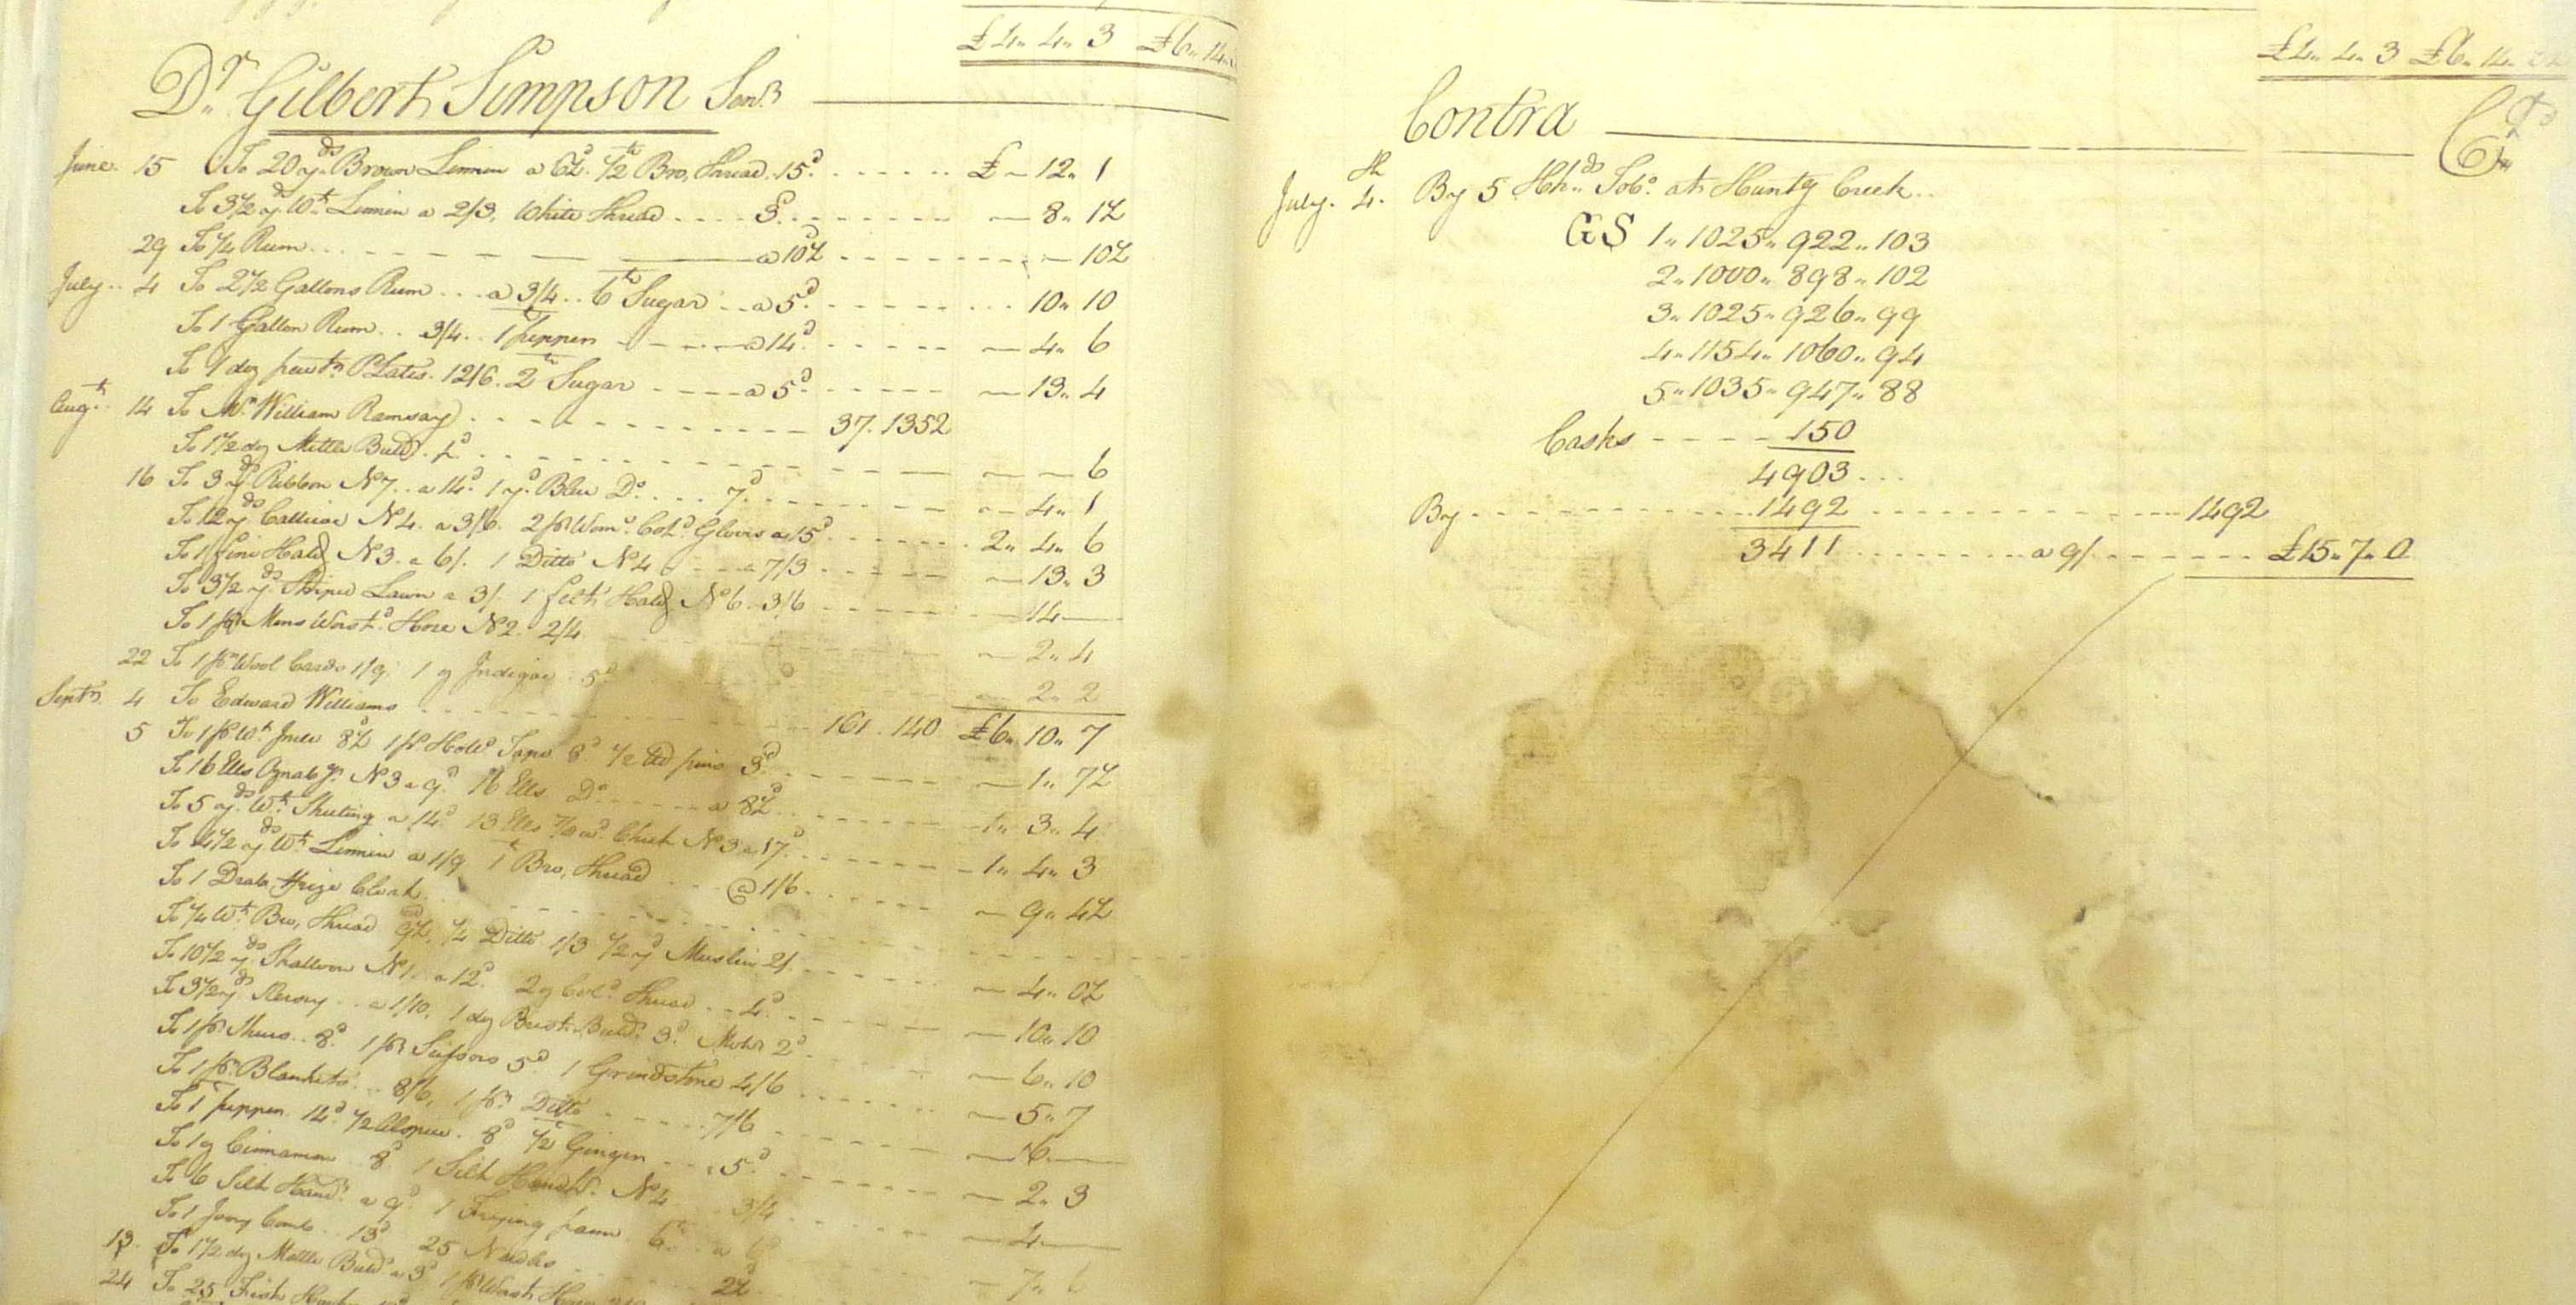 £4.. 4.. 3 £6.. 14..
Dr. Gilbert Simpson Senr.
June 15 To 20 yds Brown Linnen a 6½d ½ lb Bro, Thread 15d £ - 12.. 1
To 3½ yds Wt. Linnen a 2/3, White Thread 3d - 8.. 1½
29 To ¼ Rum a 10½d - 10½
July 4 To 2½ Gallons Rum a 3/4 6 lb Sugar a 5d 10.. 10
To 1 Gallon Rum 3/4 1 lb pepper a 14d - 4.. 6
To 1 doz pewtr. Plates 12/6 2 lb Sugar a 5d - 13.. 4
Augt. 14 To Mr William Ramsay 37. 1352
To 1½ doz Mettle Butts. 4d - - 6
16 To 3 yds Ribbon No 7 a 14d 1 yd Blue Do 7d - 4.. 1
To 12 yds Callicoe No 4 a 3/6 2 pr Wom's Cold Gloves a 15d 2.. 4.. 6
To 1 fine Hatt No 3 a 6/ 1 Ditto No 4 a 7/3 - 13.. 3
To 3½ yds Striped Lawn a 3/ 1 felt Hatt No 6 3/6 - 14 -
To 1 pr Mens Worstd. Hose No 2 2/4 - 2.. 4
22 To 1 pr Wool Cards 1/9 1 oz Indigoe 5d - 2.. 2
Septr. 4 To Edward Williams 161. 140 £6.. 10.. 7
5 To 1 ps Wt. Incle 8½ 1 ps Holld Tape 8d ½ lb pins 3d - 1.. 7½
To 16 Ells Oznabgs. No 3 a 9d 16 Ells Do a 8½d 1.. 3.. 4
To 5 yds Wt. Sheeting a 14d 13 Ells ⅞ wd Check No 3 a 17d 1.. 4.. 3
To 4½ yds Wt. Linnen a 1/9 1 lb Bro, Thread @ 1/6 - 9.. 4½
To 1 Drab frize Cloak
To ¼ Wt. Bro, Thread 9½, ¼ Ditto 1/3 ½ yd Muslin 2/ - 4.. 0½
To 10½ yds Shalloon No 1 a 12d 2 oz Cold Thread 4d - 10.. 10
To 3½ yds Kersey a 1/10, 1 doz Brest Butts. 3d Mohr 2d - 6.. 10
To 1 pr Shears 8d 1 pr Scissors 5d 1 Grindstone 4/6 - 5.. 7
To 1 pr Blankets 8/6, 1 pr Ditto 7/6 - 16 -
To 1 lb pepper 14d ½ Alspice 8d ½ lb Ginger 5d - 2.. 3
To 1 oz Cinnamon 8d 1 Silk Handkf. No 4 3/4 - 4 -
To 6 Silk Handl a 9d 1 Frying pann 6 lb a - 7.. 6
To 1 Ivory Comb 13d 25 Needls 2½
13 To 1½ doz Mettle Butts a 3d 1 pr Worstd Hose
24 To 25 Fish Hooks
£4.. 4.. 3 £6.. 14..
Contra Cr
July 4th By 5 Hhds Tobo. at Hunts Creek
GS 1.. 1025.. 922.. 103
2.. 1000.. 898.. 102
3.. 1025.. 926.. 99
4.. 1154.. 1060.. 94
5.. 1035.. 947.. 88
Casks 150
4903
By 1492 1492
3411 a 9/ £15.. 7.. 0